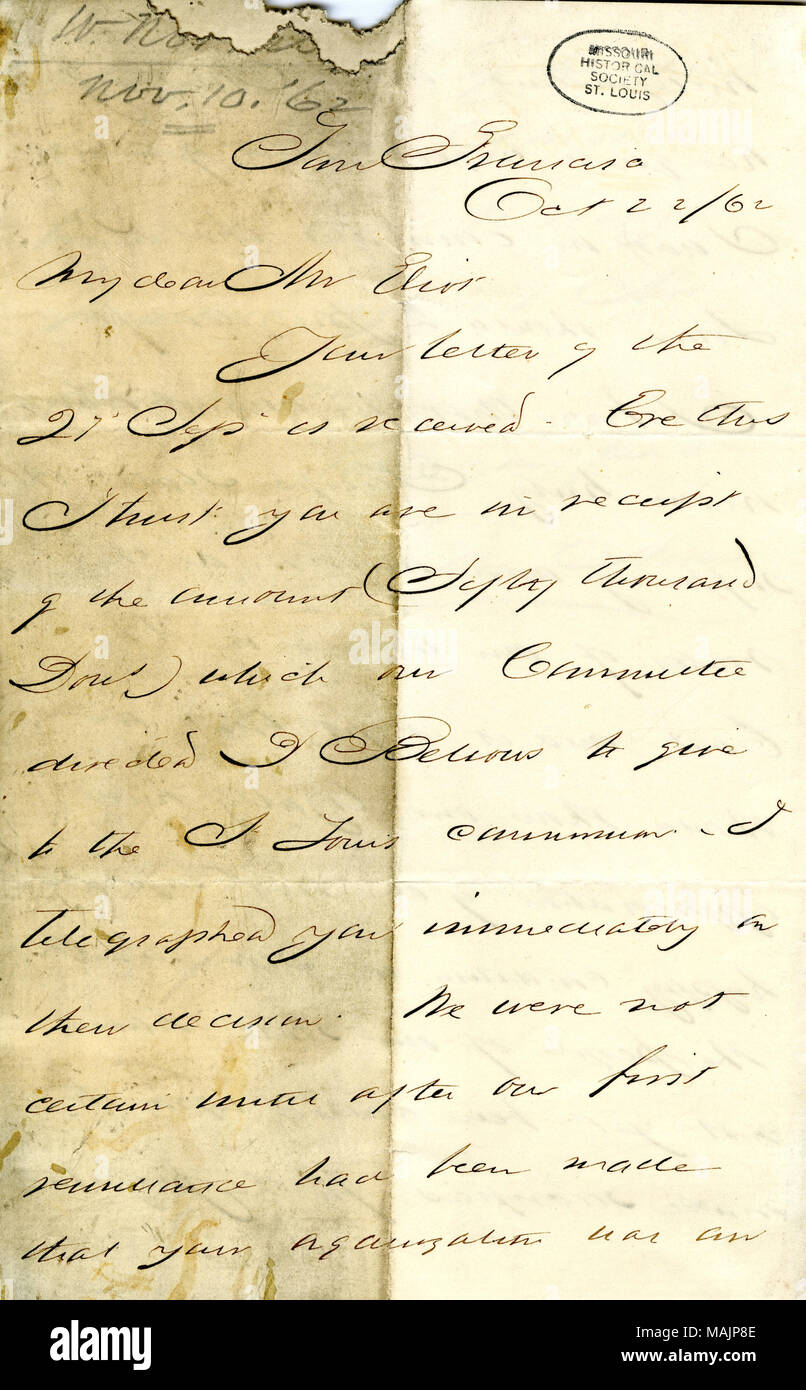 W. Nor
Nov. 10. '62
MISSOURI
HISTORICAL
SOCIETY
ST. LOUIS
San Francisco
Oct 22/62
My dear Mr Eliot
Your letter of the
27 Sep is received - Ere this
I trust you are in receipt
of the amount (Fifty thousand
Dolls) which our Committee
directed D Bellows to give
to the St Louis commission - I
telegraphed you immediately on
their decision. We were not
certain until after our first
remittance had been made
that your organization was an
alamy
Image ID: MAJP8E
www.alamy.com